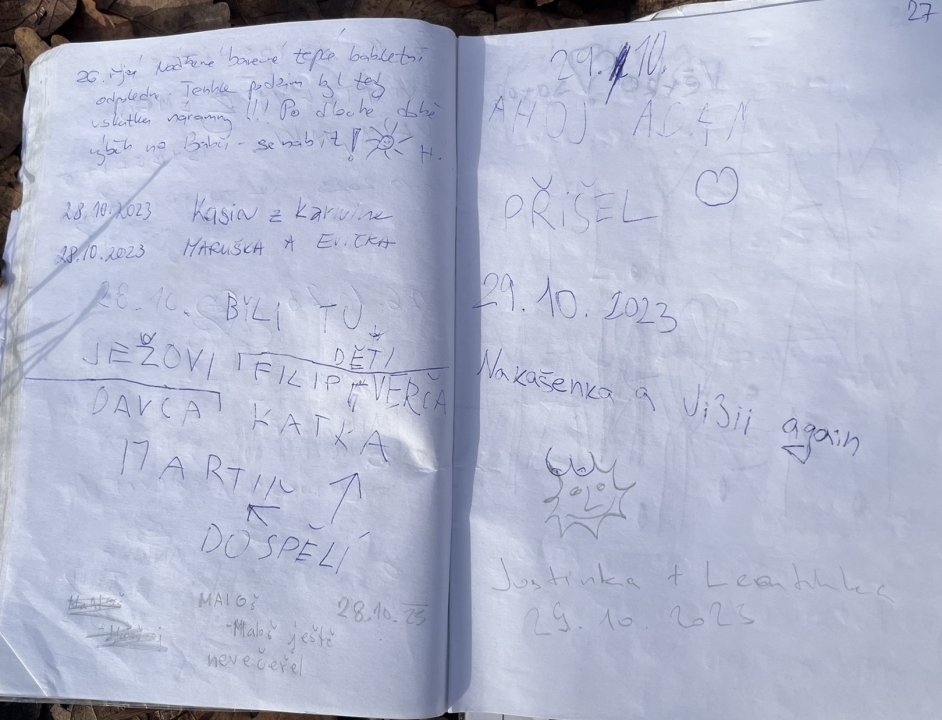 26. říjí Nádherné barevné teplé babiletní
odpoledne. Tenhle podzim byl tedy
vskutku náramný !!! Po dlouhé době
výběh na Babí - se nabít! H.
28.10.2023 z Karviné
28.10.2023 MARUŠKA A EVIČKA
28.10. BÍLI TU
JEŽOVI DĚTI
FILIP VERČA
DAVČA KATKA
MARTIN
DOSPĚLÍ
MALOŠ 28.10.23
Maloš ještě
nevečeřel
27
29.10.
AHOJ
PŘIŠEL
29.10.2023
Nakašenka a again
Justinka + Leontinka
29.10.2023